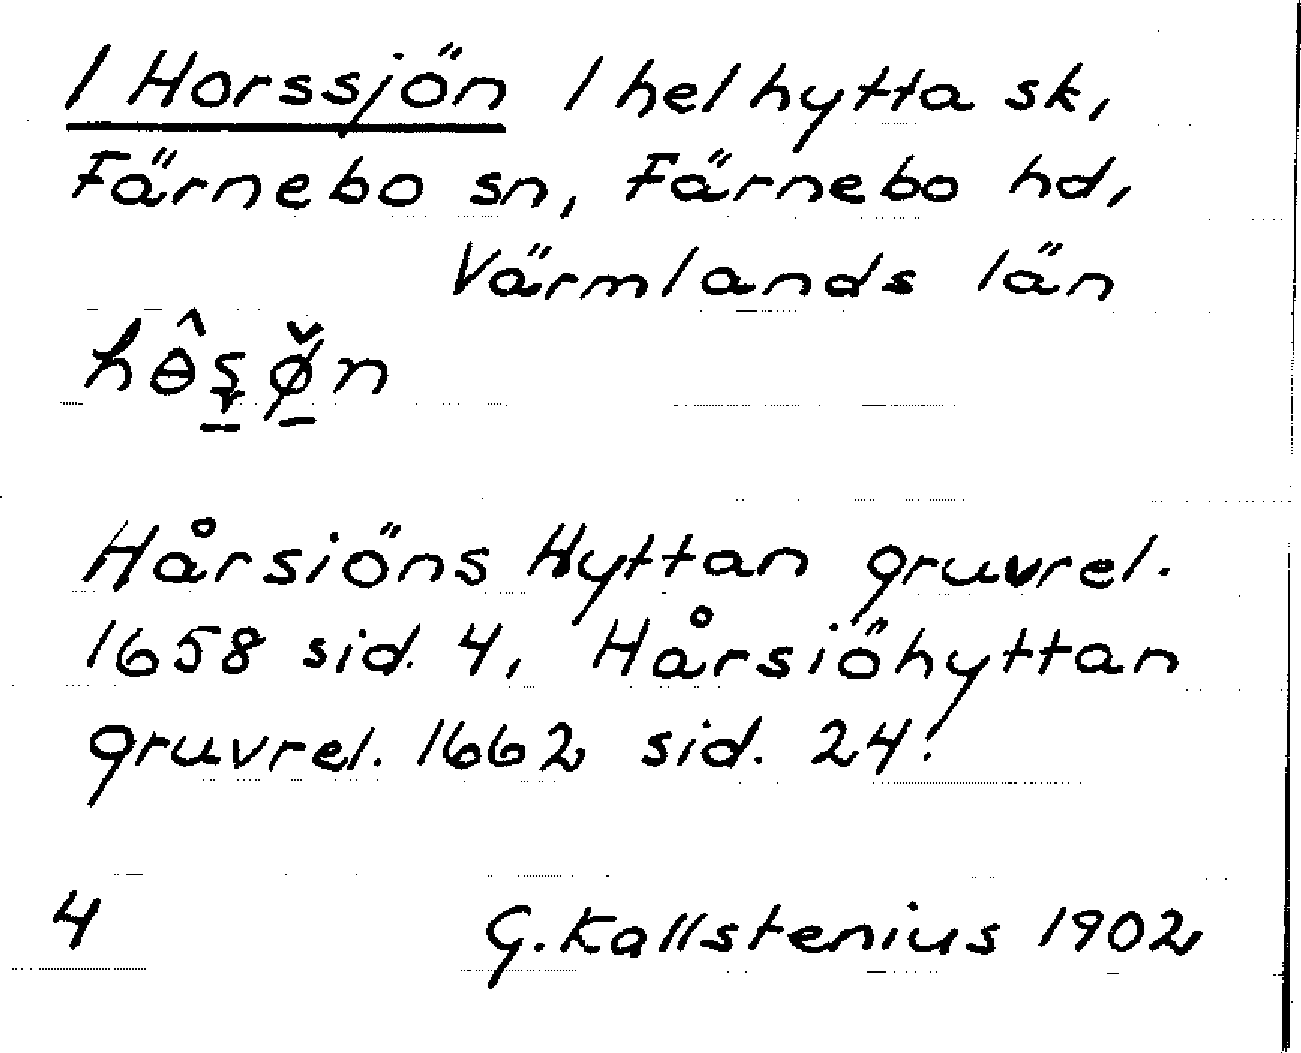 1 Horssjön 1 helhytta sk,
Färnebo sn, Färnebo hd,
Värmlands län
Hårsiöns Hyttan gruvrel.
1658 sid. 4, Hårsiöhyttan
gruvrel. 1662 sid. 24.
4 G. Kallstenius 1902